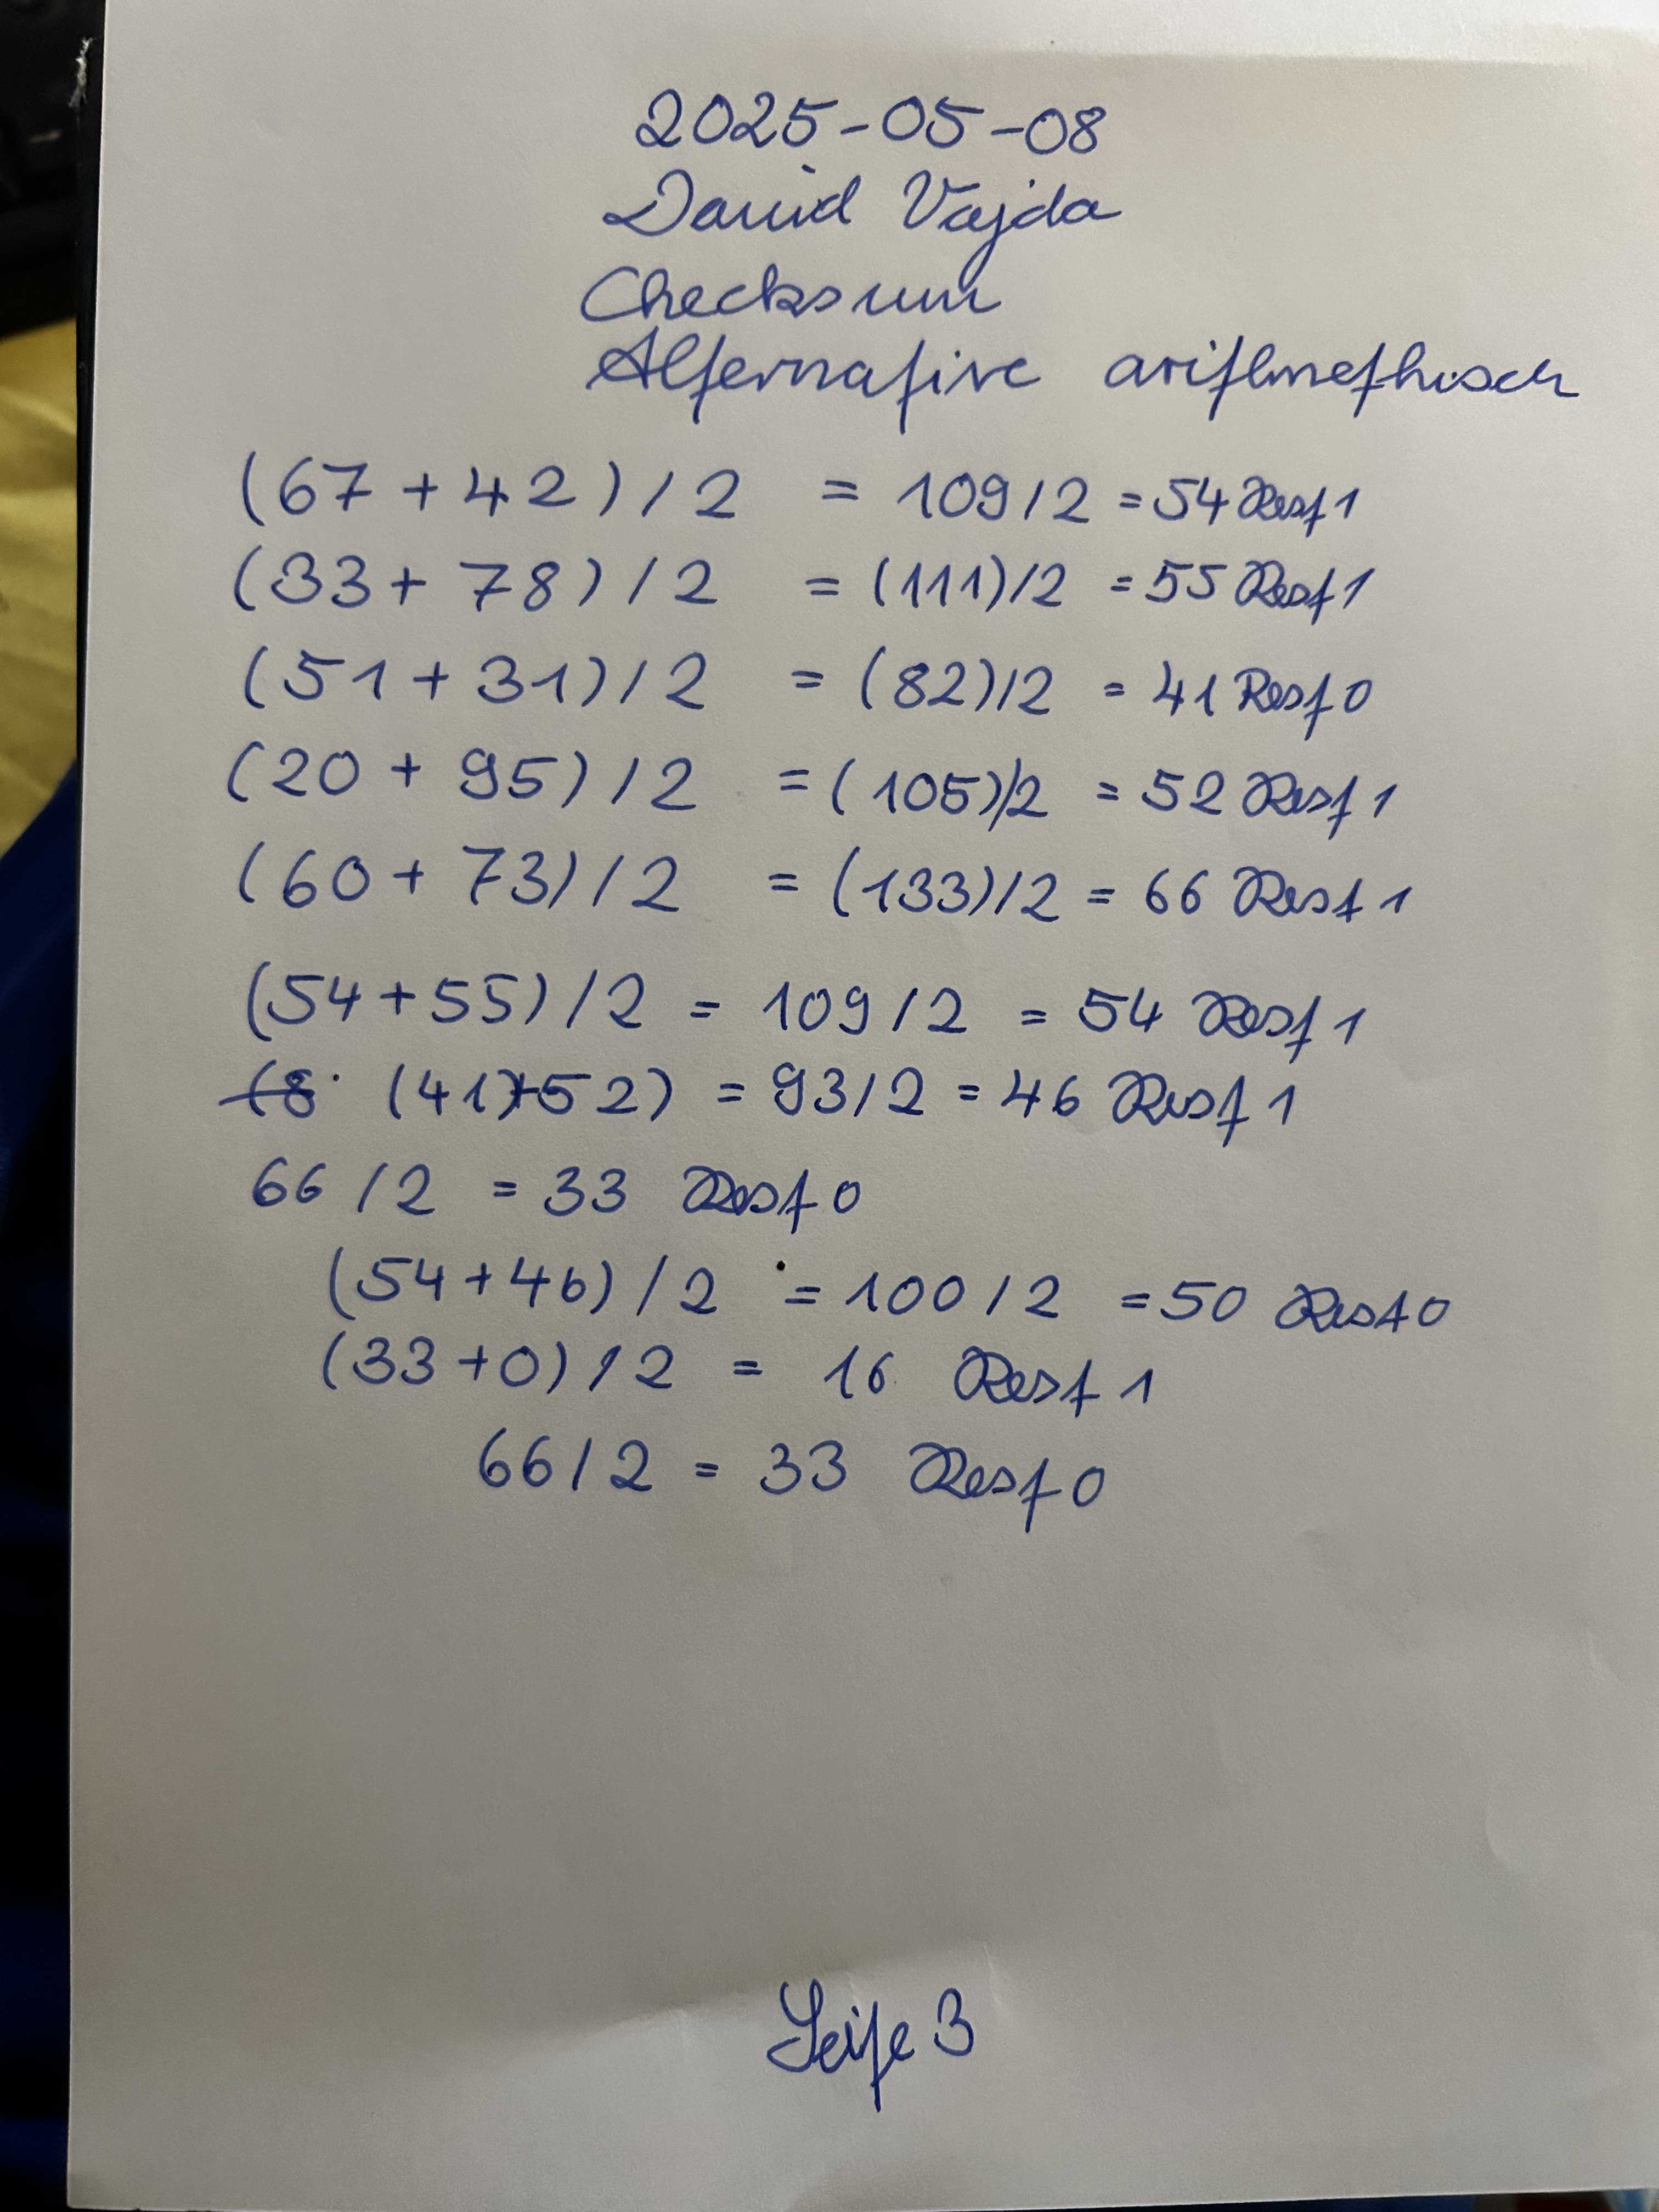 2025-05-08
David Vajda
Checksum
Alternative arithmethisch
(67 + 42) / 2 = 109 / 2 = 54 Rest 1
(33 + 78) / 2 = (111) / 2 = 55 Rest 1
(51 + 31) / 2 = (82) / 2 = 41 Rest 0
(20 + 95) / 2 = (105) / 2 = 52 Rest 1
(60 + 73) / 2 = (133) / 2 = 66 Rest 1
(54 + 55) / 2 = 109 / 2 = 54 Rest 1
(8 (41)+52) = 93 / 2 = 46 Rest 1
66 / 2 = 33 Rest 0
(54 + 46) / 2 = 100 / 2 = 50 Rest 0
(33 + 0) / 2 = 16 Rest 1
66 / 2 = 33 Rest 0
Seite 3